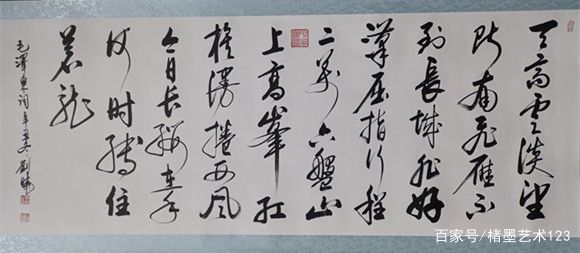 天高云淡望
断南飛雁不
到長城非好
漢屈指行程
二萬六盤山
上高峯紅
旗漫捲西風
今日長纓在手
何時縛住
蒼龍
毛澤東詞辛丑 劉
百家号/楮墨艺术123